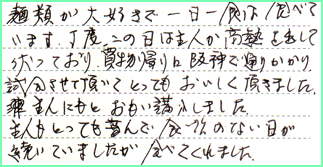 麺類が大好きで一日一食は食べて
います。丁度この日は主人が高熱を出して
伏っており、買物帰りに阪神で通りかかり
試食させて頂いてとってもおいしく頂きました。
主人にもと おもい購入しました。
主人もとっても喜んで、食欲のない日が
続いていましたが食べてくれました。